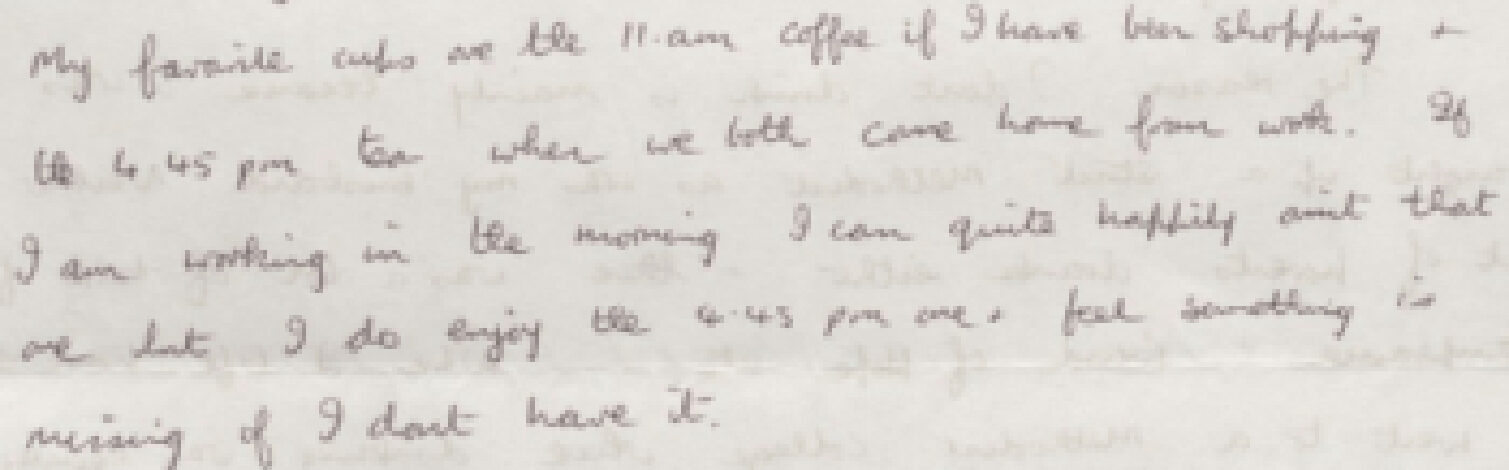 My favorite cups are the 11.am coffee if I have been shopping +
the 4.45 pm tea when we both come home from work. If
I am working in the morning I can quite happily omit that
one but I do enjoy the 4.45 pm one + feel something is
missing if I dont have it.